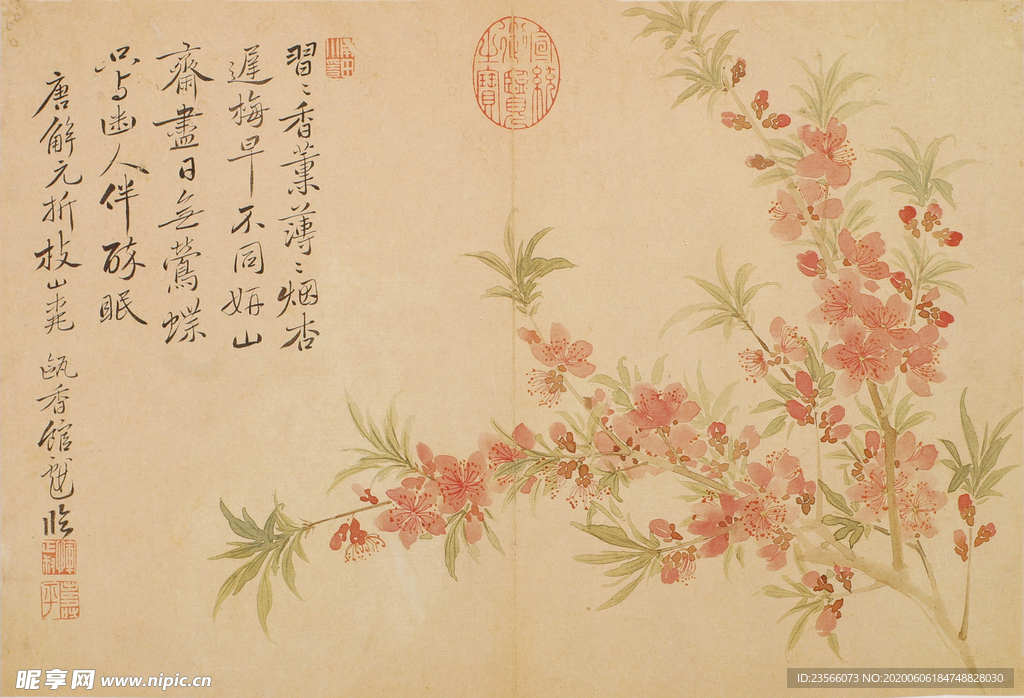 習〻香薰薄〻烟杏
遲梅早不同妍山
齋盡日無鶯蝶
只与幽人伴醉眠
唐解元折枝山桃 甌香館 臨
宣統御覽之寶
昵享网 www.nipic.cn
ID:23566073 NO:20200606184748828030